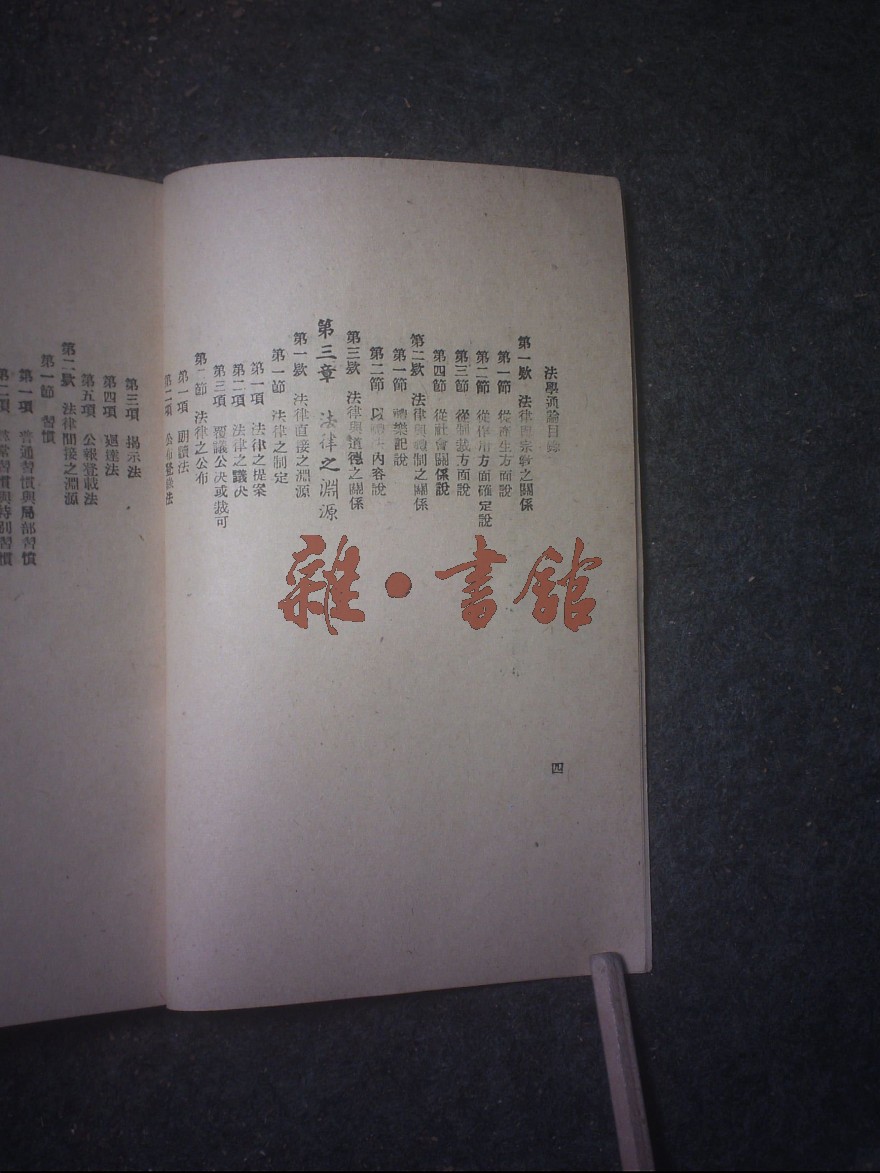 法學通論目錄
第一欵 法律與宗教之關係
第一節 從產生方面說
第二節 從作用方面確定說
第三節 從制裁方面說
第四節 從社會關係說
第二欵 法律與禮制之關係
第一節 禮樂記說
第二節 以禮之內容說
第三欵 法律與道德之關係
第三章 法律之淵源
第一欵 法律直接之淵源
第一節 法律之制定
第一項 法律之提案
第二項 法律之議決
第三項 覆議公决或裁可
第二節 法律之公布
第一項 朗讀法
第二項 公布登錄法
四
第三項 揭示法
第四項 遞達法
第五項 公報登載法
第二欵 法律間接之淵源
第一節 習慣
第一項 普通習慣與局部習慣
第二項 習慣與特別習慣
雜·書館